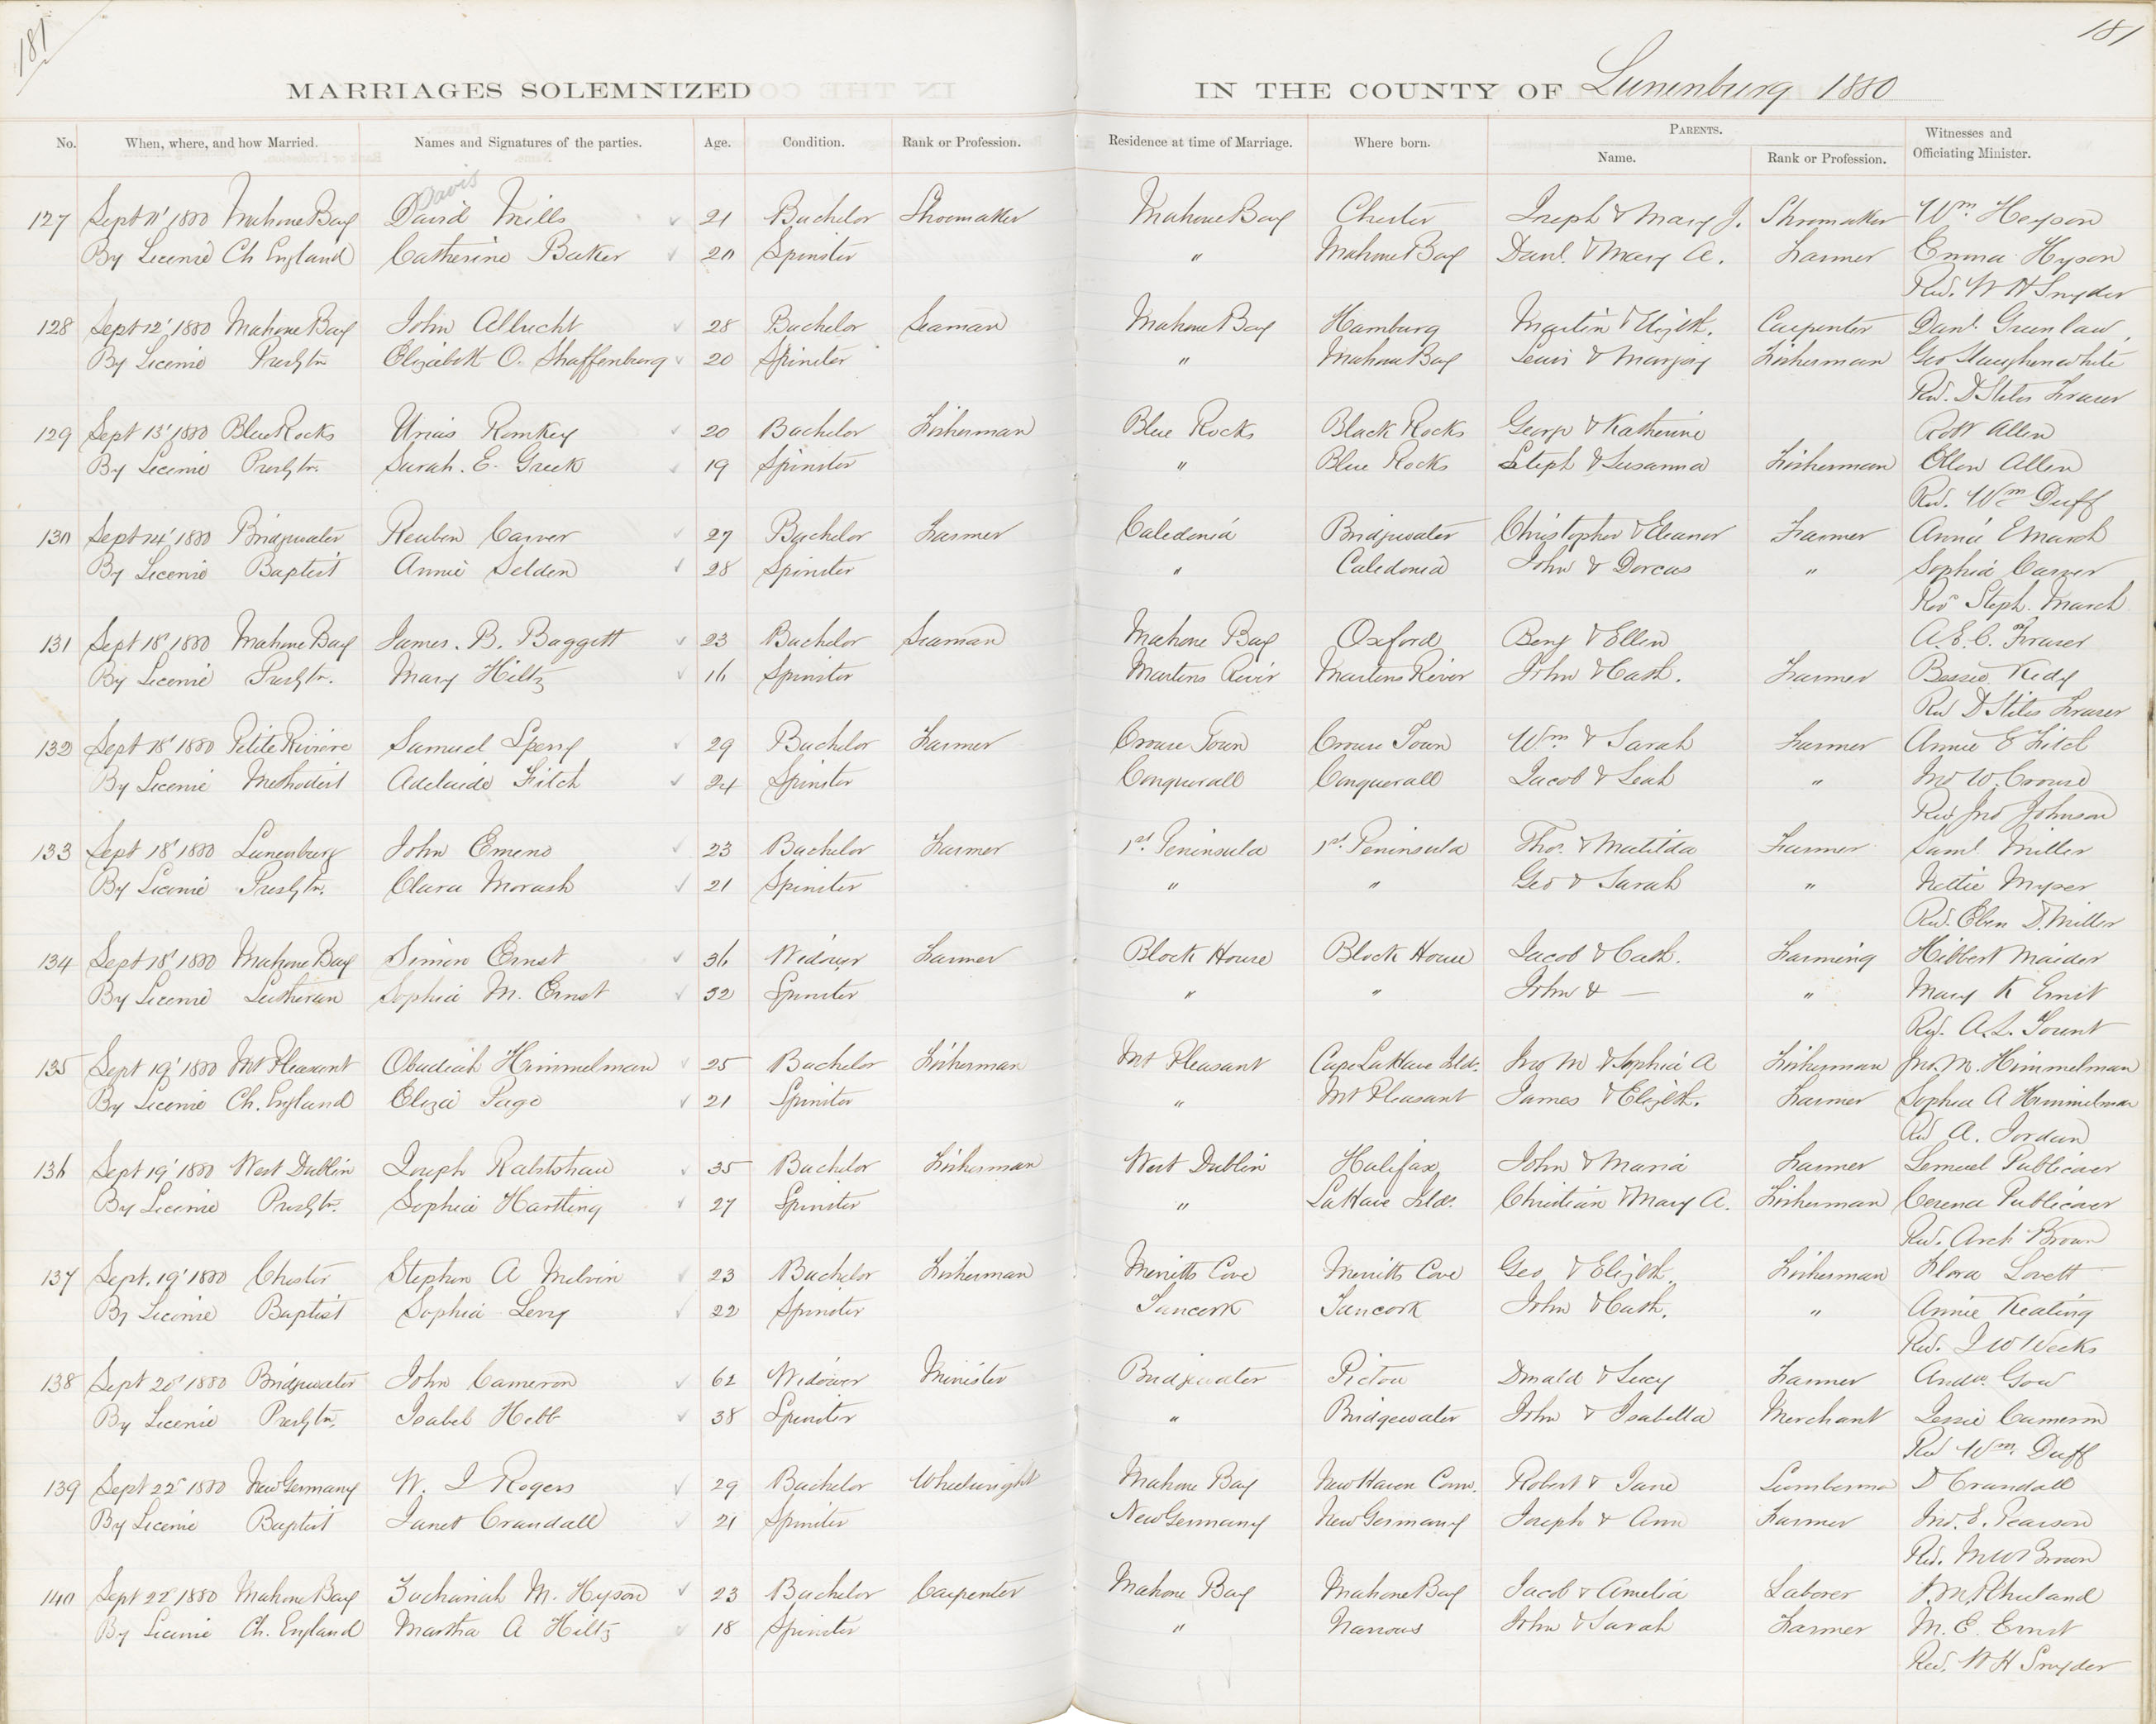 181
181
MARRIAGES SOLEMNIZED IN THE COUNTY OF Lunenburg 1880
No. When, where, and how Married. Names and Signatures of the parties. Age. Condition. Rank or Profession. Residence at time of Marriage. Where born. PARENTS. Name. Rank or Profession. Witnesses and Officiating Minister.
Davis
127 Sept 11' 1880 Mahone Bay David Mills 21 Bachelor Shoemaker Mahone Bay Chester Joseph & Mary J. Shoemaker Wm. Heyson
By Licence Ch England Catherine Baker 20 Spinster " Mahone Bay Danl. & Mary A. Farmer Emma Hyson
Rev. W H Snyder
128 Sept 12' 1880 Mahone Bay John Albrecht 28 Bachelor Seaman Mahone Bay Hamburg Martin & Elizth. Carpenter Danl. Greenlaw
By Licence Presbytn Elizabeth O. Shaffenburg 20 Spinster " Mahone Bay Lewis & Marjory Fisherman Geo Slaughenwhite
Rev. D Stiles Fraser
129 Sept 13' 1880 Blue Rocks Urias Romkey 20 Bachelor Fisherman Blue Rocks Black Rocks George & Katherine Robt Allen
By Licence Presbytn. Sarah. E. Greek 19 Spinster " Blue Rocks Steph & Susanna Fisherman Ellen Allen
Rev. Wm Duff
130 Sept 14' 1880 Bridgwater Reuben Carver 27 Bachelor Farmer Caledonia Bridgwater Christopher & Eleanor Farmer Annie E March
By Licence Baptist Annie Selden 28 Spinster " Caledonia John & Dorcas " Sophia Carver
Rev Steph. March
131 Sept 18' 1880 Mahone Bay James. B. Baggett 23 Bachelor Seaman Mahone Bay Oxford Benj & Ellen A. E. C. Fraser
By Licence Presbytn. Mary Hiltz 16 Spinster Martins River Martins River John & Cath. Farmer Bessie Kedy
Rev D Stiles Fraser
132 Sept 18' 1880 Petite Riviere Samuel Sperry 29 Bachelor Farmer Crouse Town Crouse Town Wm & Sarah Farmer Annie E Fitch
By Licence Methodist Adelaide Fitch 24 Spinster Conquerall Conquerall Jacob & Leah " Jno W. Crouse
Rev Jno Johnson
133 Sept 18' 1880 Lunenburg John Emeno 23 Bachelor Farmer 1st. Peninsula 1st. Peninsula Thos. & Matilda Farmer Saml. Miller
By Licence Presbytn. Clara Morash 21 Spinster " " Geo & Sarah " Nettie Myser
Rev. Eben D. Miller
134 Sept 18' 1880 Mahone Bay Simon Ernst 36 Widower Farmer Block House Block House Jacob & Cath. Farming Hibbert Maider
By Licence Lutheran Sophia M. Ernst 32 Spinster " " John & — " Mary K Ernst
Rev. A. L. Yount
135 Sept 19' 1880 Mt Pleasant Obadiah Himmelman 25 Bachelor Fisherman Mt Pleasant Cape LaHave Isld. Jno M & Sophia A Fisherman Jno. M. Himmelman
By Licence Ch. England Eliza Page 21 Spinster " Mt Pleasant James & Elizth. Farmer Sophia A Himmelman
Rev A. Jordan
136 Sept 19' 1880 West Dublin Joseph Ralstshaw 35 Bachelor Fisherman West Dublin Halifax John & Maria Farmer Lemuel Publicover
By Licence Presbytn. Sophia Hartling 27 Spinster " LaHave Isld. Christian & Mary A. Fisherman Cerena Publicover
Rev. Arch Brown
137 Sept. 19' 1880 Chester Stephen A Melvin 23 Bachelor Fisherman Merritts Cove Merritts Cove Geo & Elizth. Fisherman Flora Lovett
By Licence Baptist Sophia Levy 22 Spinster Tancook Tancook John & Cath. " Annie Keating
Rev. I W Weeks
138 Sept 20' 1880 Bridgwater John Cameron 62 Widower Minister Bridgwater Pictou Donald & Lucy Farmer Andw. Gow
By Licence Presbytn. Isabel Hebb 38 Spinster " Bridgewater John & Isabella Merchant Jessie Cameron
Rev Wm. Duff
139 Sept 22' 1880 New Germany W. J Rogers 29 Bachelor Wheelwright Mahone Bay New Haven Conn. Robert & Jane Lumberman D Crandall
By Licence Baptist Janet Crandall 21 Spinster New Germany New Germany Joseph & Ann Farmer Jno. E. Pearson
Rev. M W Brown
140 Sept 22' 1880 Mahone Bay Zachariah M. Hyson 23 Bachelor Carpenter Mahone Bay Mahone Bay Jacob & Amelia Laborer Rhuland
By Licence Ch. England Martha A Hiltz 18 Spinster " Narrows John & Sarah Farmer M. E. Ernst
Rev. W H Snyder